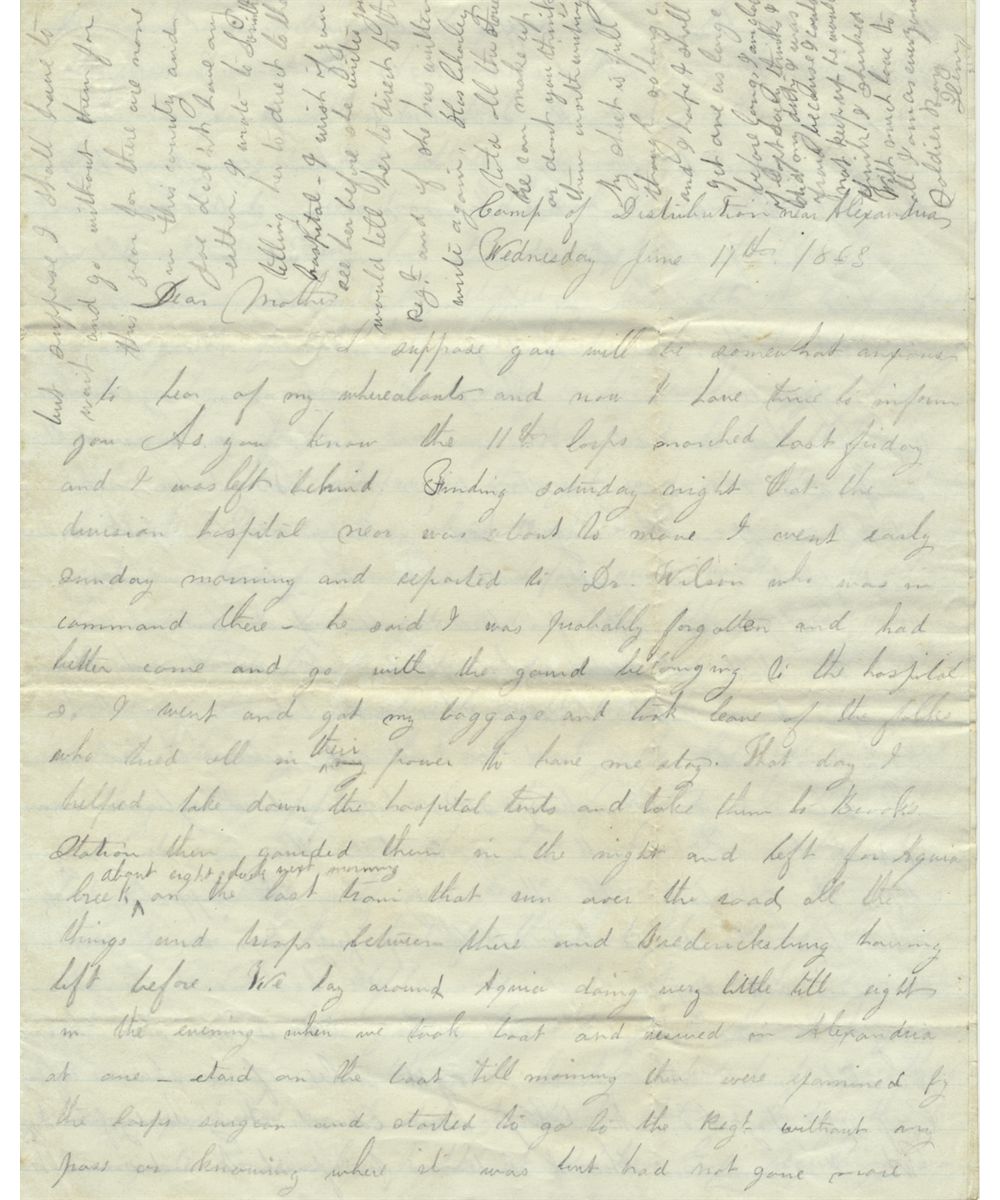 Camp of Distribution near Alexandria
Wednesday June 17th 1863
Dear Mother
I suppose you will be somewhat anxious
to hear of my whereabouts and now I have time to inform
you As you know the 11th Corps marched last friday
and I was left behind. Finding saturday night that the
division hospital near was about to move I went early
sunday morning and reported to Dr. Wilson who was in
command there – he said I was probably forgotten and had
better come and go with the gaurd belonging to the hospital
so I went and got my baggage and took leave of the folks
who tried all in their power to have me stay. That day I
helped take down the hospital tents and take them to Brooks
Station then gaurded them in the night and left for Aquia
about eight o'clock next morning
Creek on the last train that run over the road, all the
things and troops between there and Fredericksburg having
left before. We lay around Aquia doing very little till eight
in the evening when we took boat and arrived in Alexandria
at one – staid on the boat till morning then were examined by
the Corps surgeon and started to go to the Regt. without any
pass or knowing where it was but had not gone more
but suppose I shall have to
wait and go without them for
this year for there are none
in this country and
Joe does'nt have any
either. I wrote to
telling her to direct to the
hospital – I wish if you
see her before she writes you
would tell her to direct to the
Regt. and if she has written
write again. Has Charley
told all the
he can make up
or dont you think
them worth writing
My sheet is full
though so large
and I hope I shall
get one as large
before long. I am glad
did my duty I was
because I could
not keep up he would
think I shirked
With much love to
all I am as ever your
Soldier Boy
Henry